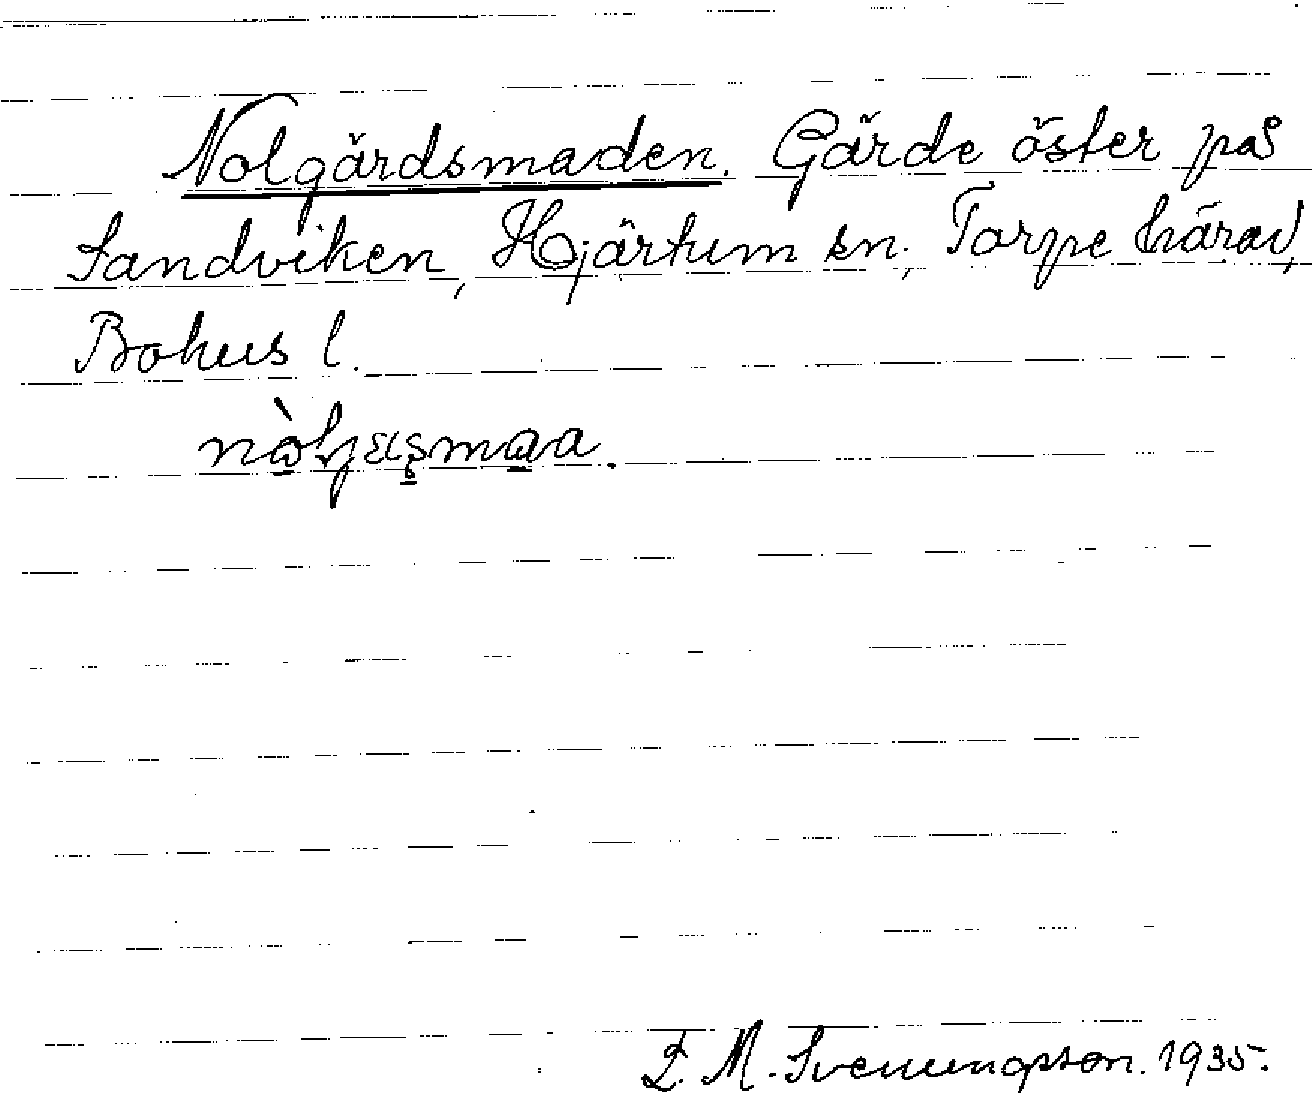 Nolgärdsmaden. Gärde öster på
Sandviken, Hjärtum sn., Torpe härad,
Bohus l.
E. M. Svenungsson. 1935.